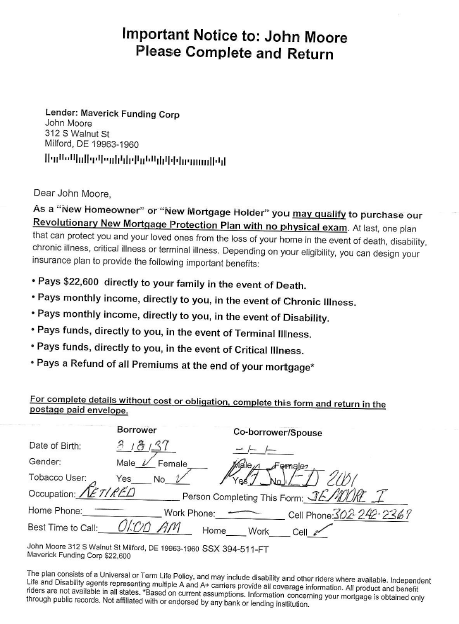 Important Notice to: John Moore
Please Complete and Return
Lender: Maverick Funding Corp
John Moore
312 S Walnut St
Milford, DE 19963-1960
Dear John Moore,
As a "New Homeowner" or "New Mortgage Holder" you may qualify to purchase our
Revolutionary New Mortgage Protection Plan with no physical exam. At last, one plan
that can protect you and your loved ones from the loss of your home in the event of death, disability,
chronic illness, critical illness or terminal illness. Depending on your eligibility, you can design your
insurance plan to provide the following important benefits:
• Pays $22,600 directly to your family in the event of Death.
• Pays monthly income, directly to you, in the event of Chronic Illness.
• Pays monthly income, directly to you, in the event of Disability.
• Pays funds, directly to you, in the event of Terminal Illness.
• Pays funds, directly to you, in the event of Critical Illness.
• Pays a Refund of all Premiums at the end of your mortgage*
For complete details without cost or obligation, complete this form and return in the
postage paid envelope.
Borrower Co-borrower/Spouse
Date of Birth: 3/8/37 -/-/-
Gender: Male ✓ Female Male Female
Tobacco User: Yes No ✓ Yes No PASSED 2001
Occupation: RETIRED Person Completing This Form:
Home Phone: — Work Phone: — Cell Phone: 302-242-2369
Best Time to Call: 01:00 AM Home Work Cell ✓
John Moore 312 S Walnut St Milford, DE 19963-1960 SSX 394-511-FT
Maverick Funding Corp $22,600
The plan consists of a Universal or Term Life Policy, and may include disability and other riders where available. Independent
Life and Disability agents representing multiple A and A+ carriers provide all coverage information. All product and benefit
riders are not available in all states. *Based on current assumptions. Information concerning your mortgage is obtained only
through public records. Not affiliated with or endorsed by any bank or lending institution.